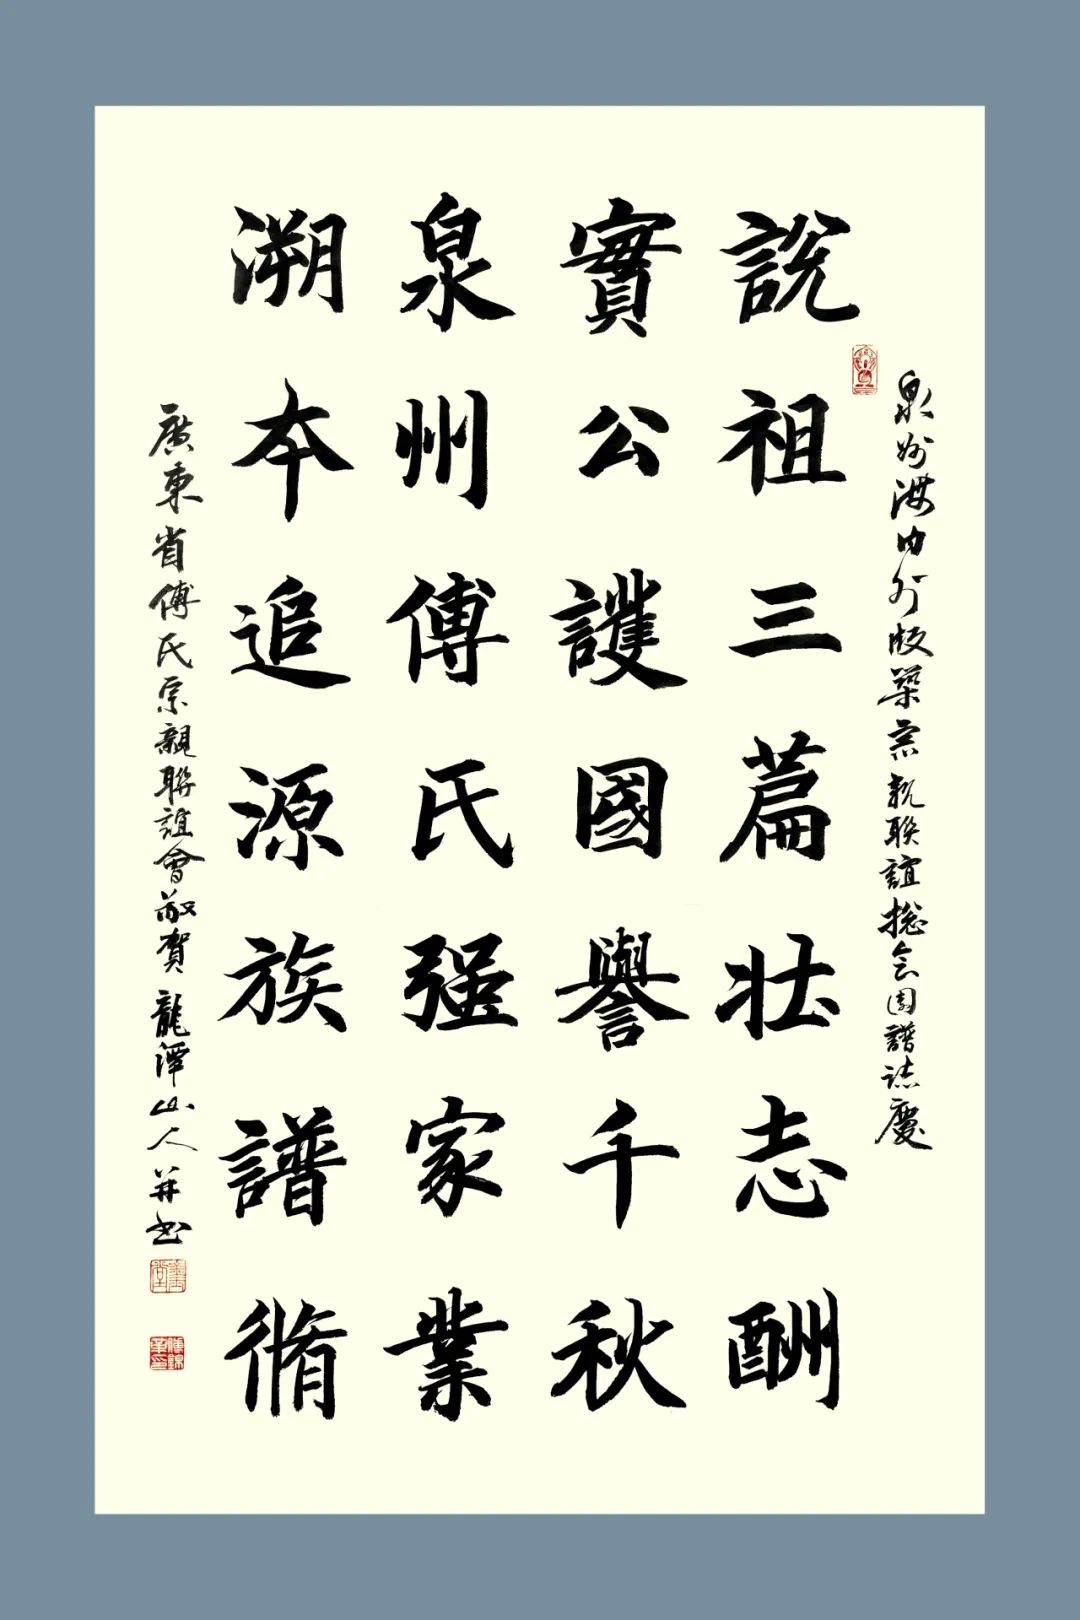 泉州海内外版築宗親联誼揔会圆譜誌慶
説祖三篇壯志酬
實公護國譽千秋
泉州傅氏强家業
溯本追源族譜脩
廣東省傅氏宗親聯誼會敬賀 龍潭山人并书